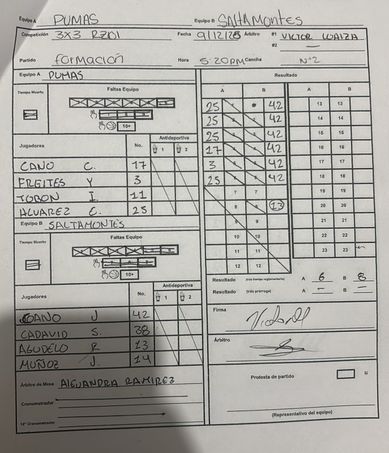 Equipo A PUMAS Equipo B SALTAMONTES
Competición 3X3 Fecha 9/12/25 Árbitro #1 VICTOR
#2 —
Partido formación Hora 5:20PM Cancha N°2
Equipo A PUMAS Resultado
Tiempo Muerto Faltas Equipo A B A B
10+
Antideportiva
Jugadores No. 1 2
CANO C. 17
FREITES Y 3
TOBON I. 11
ALVAREZ C. 25
25 1 42
25 2 42
25 3 42
17 4 42
3 5 42
25 6 42
7 7
8 8 13
9 9
10 10
11 11
12 12
13 13
14 14
15 15
16 16
17 17
18 18
19 19
20 20
21 21
22 22
23 23
Equipo B SALTAMONTES
Tiempo Muerto Faltas Equipo
10+
Resultado (tras tiempo reglamentario) A 6 B 8
Resultado (tras prórroga) A — B —
Antideportiva
Jugadores No. 1 2
CANO J 42
CADAVID S. 38
AGUDELO R 13
MUÑOZ J. 14
Firma
Árbitro
Árbitro de Mesa ALEJANDRA RAMIREZ
Protesta de partido
Cronometrador
(Representativo del equipo)